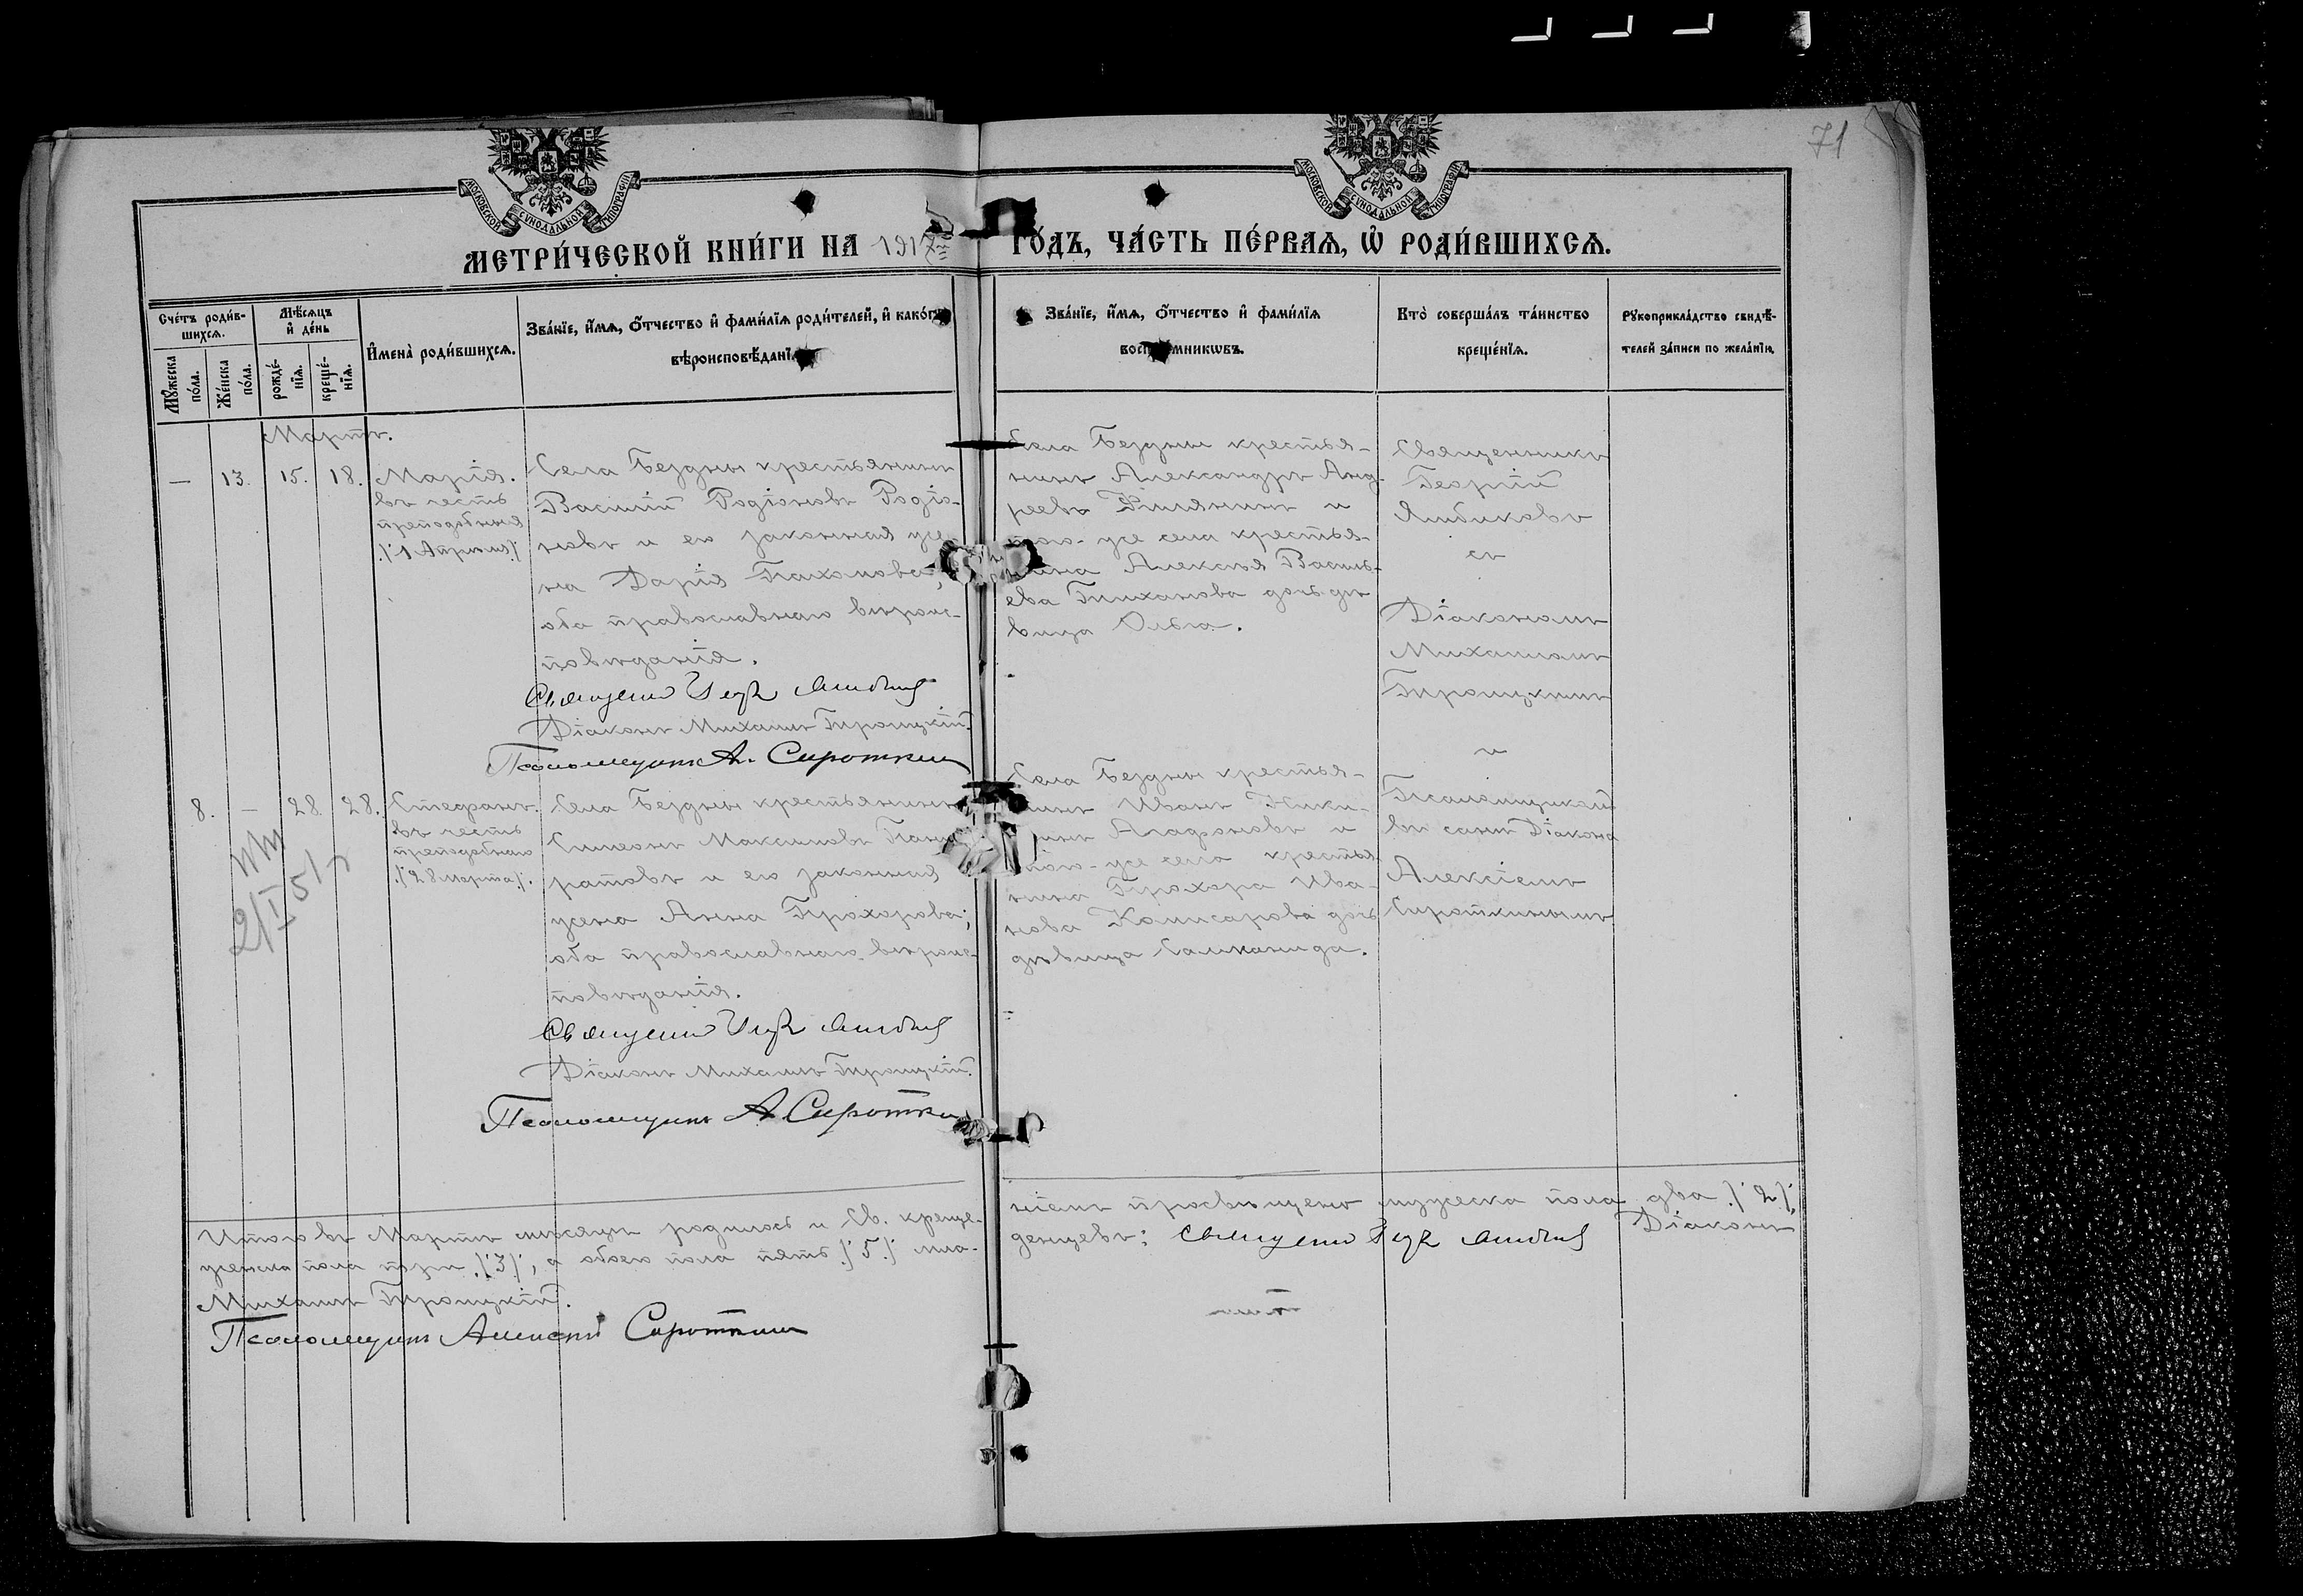 71
МОСКОВСКОЙ СѴНОДАЛЬНОЙ ТИПОГРАФІИ
МОСКОВСКОЙ СѴНОДАЛЬНОЙ ТИПОГРАФІИ
МЕТРИ́ЧЕСКОЙ КНИ́ГИ НА 1917 ГО́ДЪ, ЧА́СТЬ ПЕ́РВАѦ, Ѡ҆ РОДИ́ВШИХСѦ.
Сче́тъ роди́в-
шихсѧ.
Мꙋ́жеска
по́ла.
Же́нска
по́ла.
Мѣ́сѧцъ
и҆ де́нь
рожде́-
нїѧ.
креще́-
нїѧ.
И҆мена̀ роди́вшихсѧ.
Зва́нїе, и҆́мѧ, ѻ҆́тчество и҆ фами́лїѧ роди́телей, и҆ како́гѡ
вѣроисповѣ́данїѧ.
Зва́нїе, и҆́мѧ, ѻ҆́тчество и҆ фами́лїѧ
воспрїе́мникѡвъ.
Кто̀ соверша́лъ та́инство
креще́нїѧ.
Рꙋкоприкла́дство свидѣ́-
телей за́писи по жела́нїю.
Мартъ.
— 13. 15. 18.
Марія.
въ честь
преподобныя
/: 1 Апрѣля :/
Села Бездны крестьянинъ
Василій Родіоновъ Родіо-
новъ и его законная же-
на Дарія Пахомова;
оба православнаго вѣроис-
повѣданія.
Діаконъ Михаилъ Троицкій.
Псаломщикъ А. Сироткин
Села Бездны крестья-
нинъ Александръ Анд-
реевъ и
того-же села крестья-
нина Алексѣя Василь-
ева Тиханова дочь дѣ-
вица Ольга.
Священникъ
Георгій
съ
Діакономъ
Михаиломъ
Троицкимъ
и
Псаломщикомъ
въ санѣ Діакона
Алексіемъ
Сироткинымъ
8. — 28. 28.
Стефанъ.
въ честь
преподобнаго
/: 28 Марта :/.
Села Бездны крестьянинъ
Симеонъ Максимовъ
ратовъ и его законная
жена Анна Прохорова;
оба православнаго вѣроис-
повѣданія.
Діаконъ Михаилъ Троицкій.
Псаломщикъ А. Сиротки
Села Бездны крестья-
нинъ Иванъ Ники-
тинъ Агафоновъ и
того-же села крестья-
нина Прохора Ива-
нова Комисарова дочь
дѣвица Саломонида.
Итого въ Мартѣ мѣсяцѣ родилось и Св. креще-
ніемъ просвѣщено мужеска пола два /: 2 :/,
женска пола три /: 3 :/, а обоего пола пять /: 5 :/ мла-
денцевъ: Діаконъ
Михаилъ Троицкій.
Псаломщикъ Алексѣй Сироткин